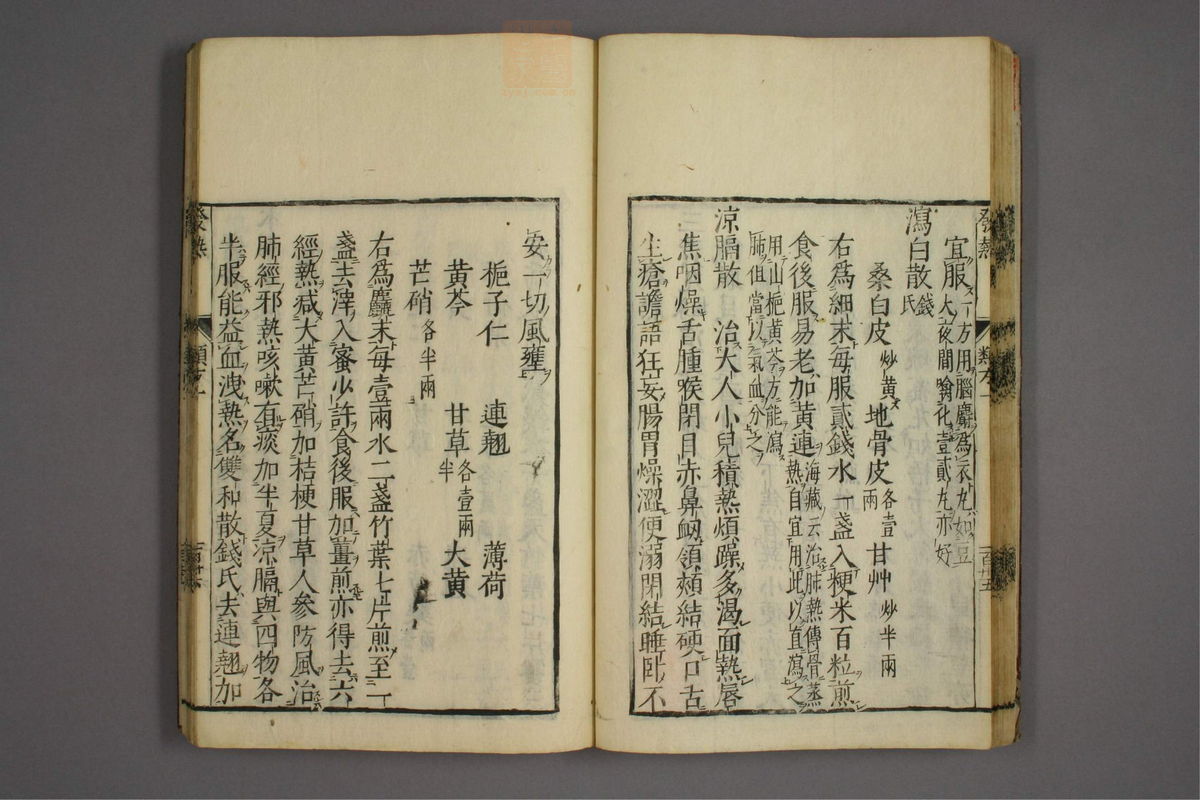 發熱 類方一 百廿五
宜服一方用腦麝為衣丸如豆
大夜間噙化壹貳丸亦好
瀉白散錢氏
桑白皮炒黃 地骨皮各壹兩 甘艸炒半兩
右為細末每服貳錢水一盞入粳米百粒煎
食後服易老加黃連海藏云治肺熱傳骨蒸
熱自宜用此以直瀉之
用山梔黃芩方能瀉
肺但當以氣血分之
涼膈散 治大人小兒積熱煩躁多渴面熱唇
焦咽燥舌腫喉閉目赤鼻衂頷頰結硬口舌
生瘡譫語狂妄腸胃燥澀便溺閉結睡卧不
安一切風壅
梔子仁 連翹 薄荷
黃芩 甘草各壹兩半 大黃
芒硝各半兩
右為麤末每壹兩水二盞竹葉七片煎至一
盞去滓入蜜少許食後服加薑煎亦得去六
經熱减大黃芒硝加桔梗甘草人參防風治
肺經邪熱咳嗽有痰加半夏涼膈與四物各
半服能益血洩熱名雙和散錢氏去連翹加
發熱 類方一